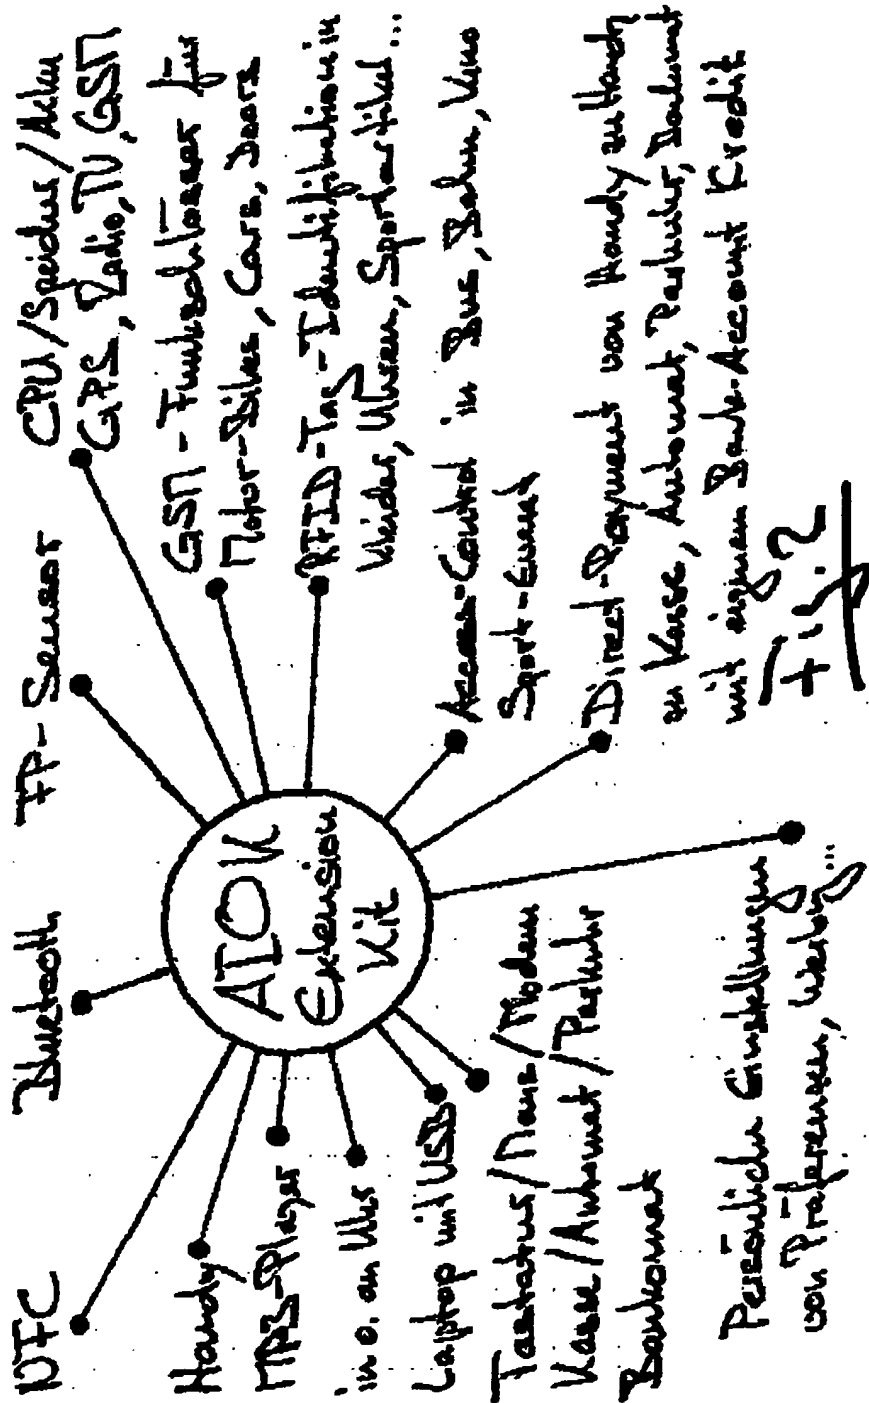 NFC
Bluetooth
FP-Sensor
CPU/Speicher/Akku
GPS, Radio, TV, GSM
GSM-Funkschlösser für
Motor-Bikes, Cars, Doors
RFID-Tag-Identifikation in
Kleider, Uhren, Sportartikel...
Access-Control in Bus, Bahn, Kino
Sport-Event
Direct-Payment von Handy zu Handy
zu Kasse, Automat, Parkuhr, Bankomat
mit eigenem Bank-Account Kredit
AIOK
Extension
Kit
Handy
MP3-Player
in o. an Uhr
Laptop mit USB
Tastatur/Maus/Modem
Kasse/Automat/Parkuhr
Bankomat
Persönliche Einstellungen
von Präferenzen, Werbg...
Fig. 2